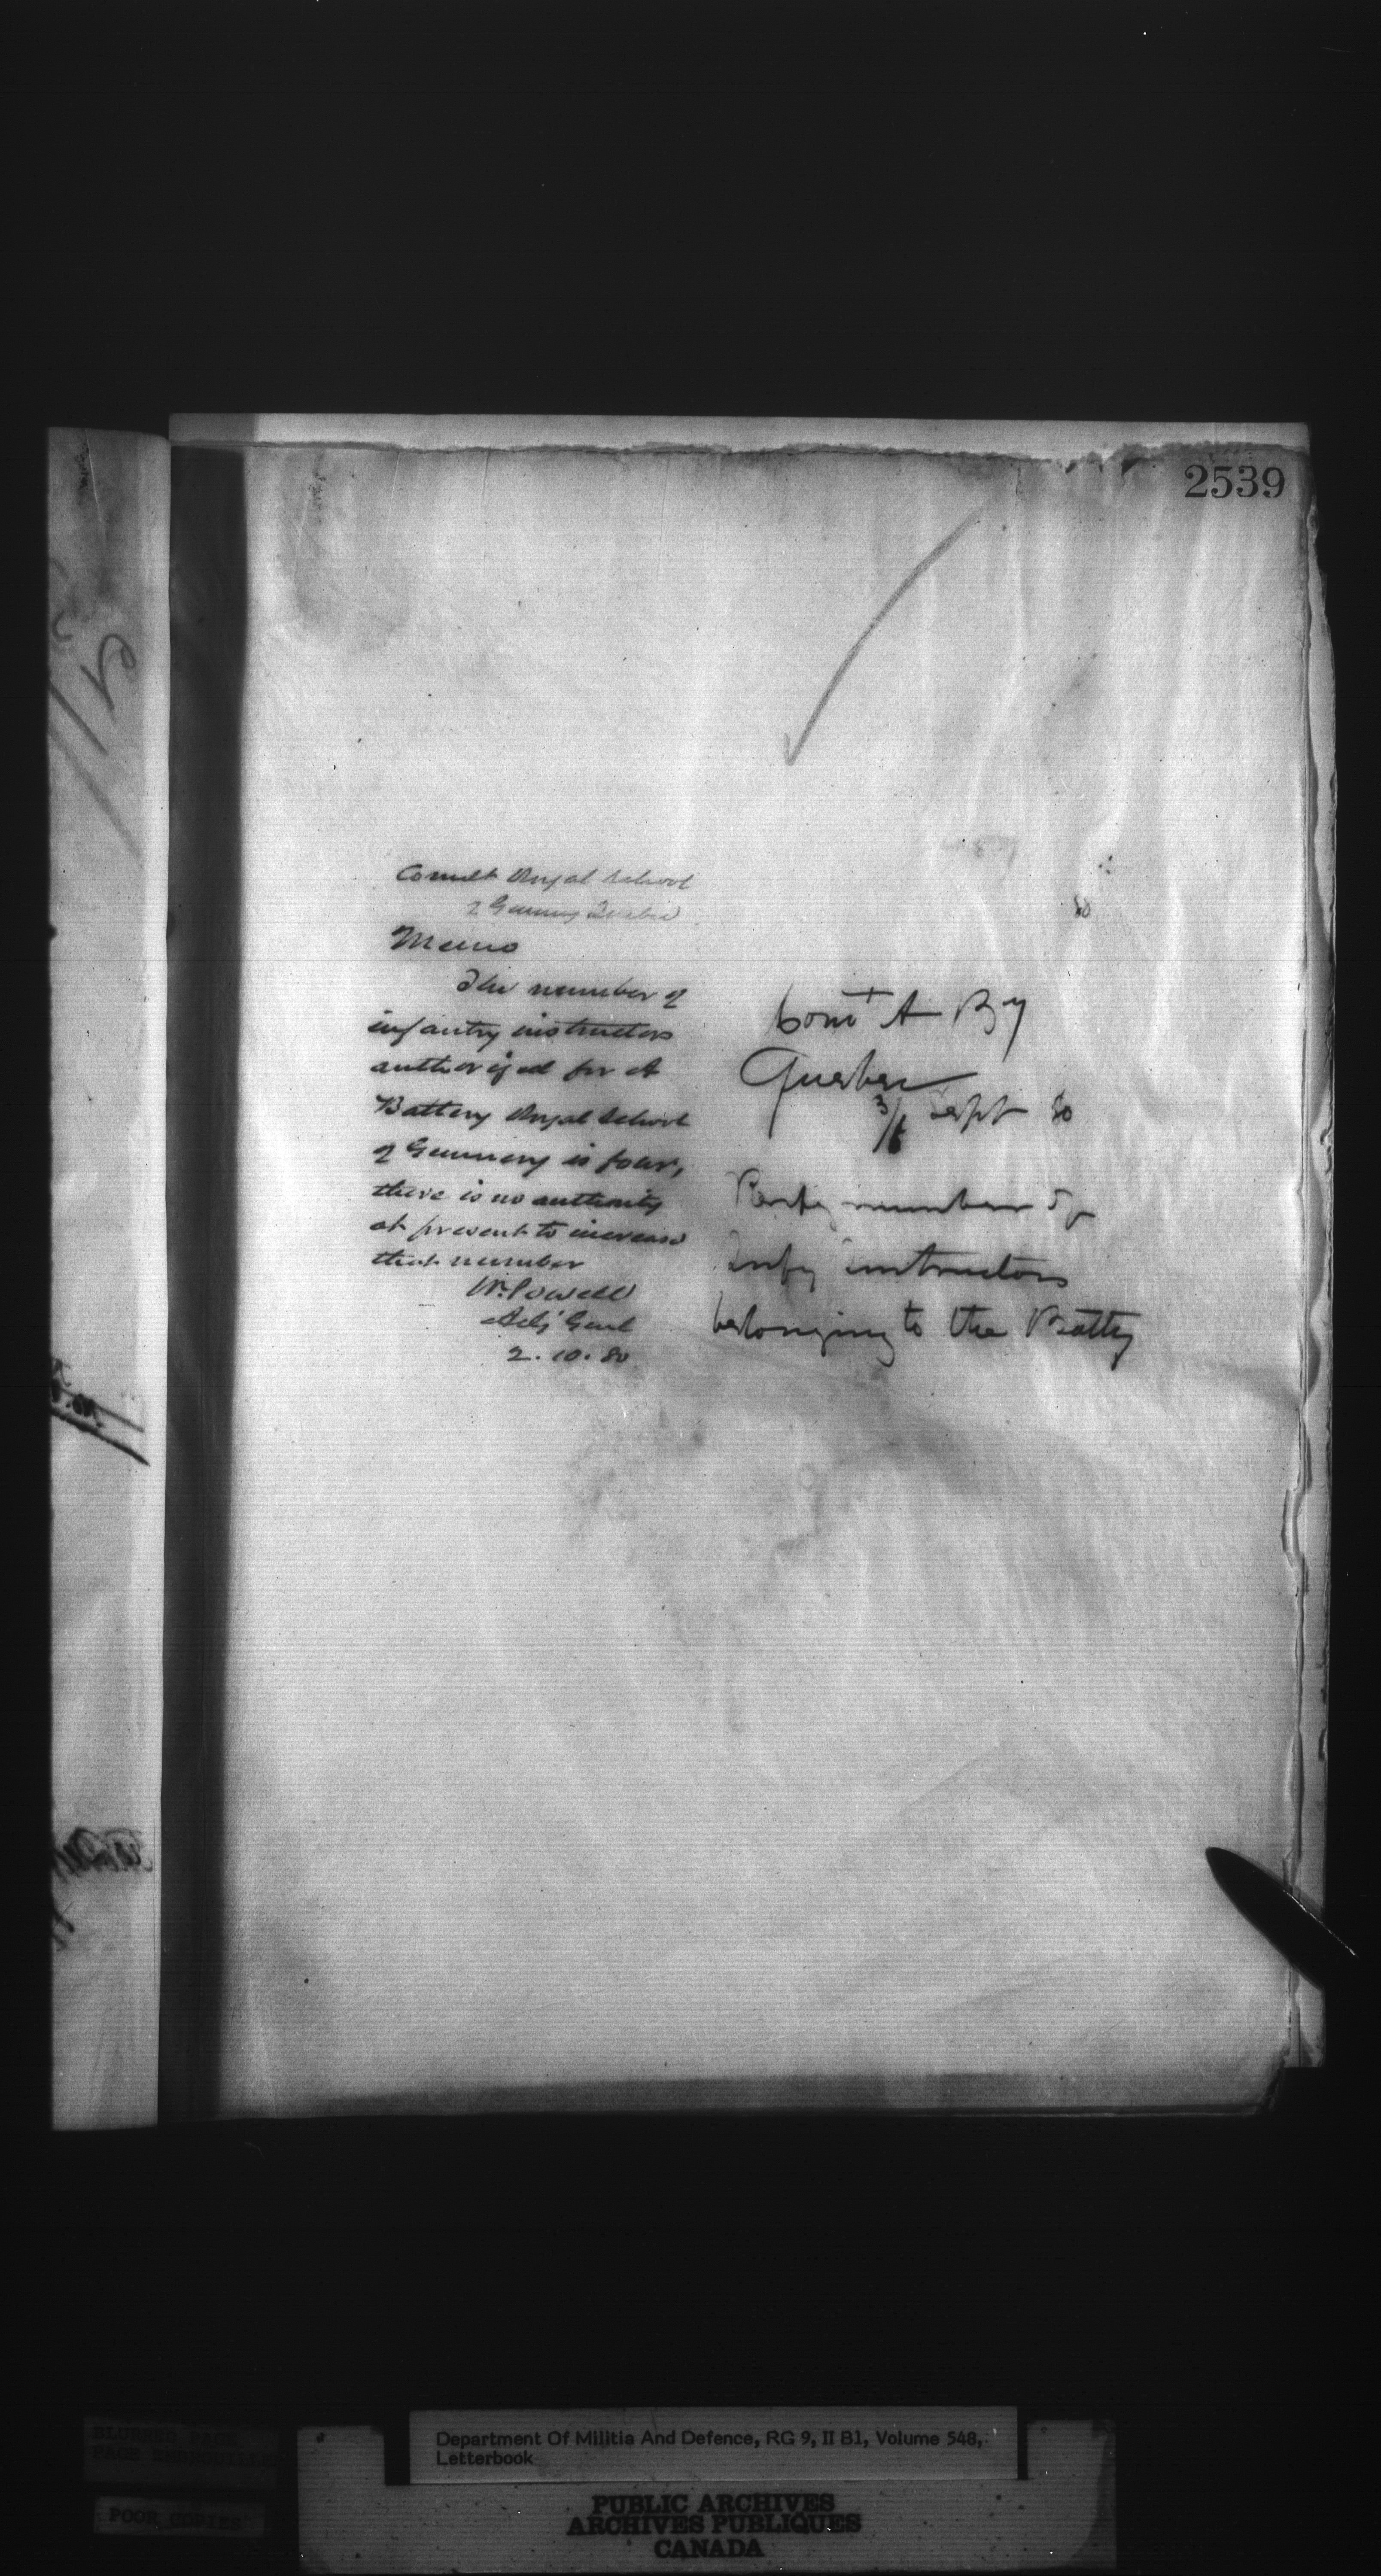 2539
Comdt Royal School
of Gunnery Quebec
Memo
The number of
infantry instructors
authorized for A
Battery Royal School
of Gunnery is four,
there is no authority
at present to increase
that number
W. Powell
Adj Genl
2.10.80
Comt A By
Quebec
Sept 80
number of
Infy instructors
belonging to the Batty
Department Of Militia And Defence, RG 9, II B1, Volume 548,
Letterbook
BLURRED PAGE
POOR COPIES
PUBLIC ARCHIVES
ARCHIVES PUBLIQUES
CANADA